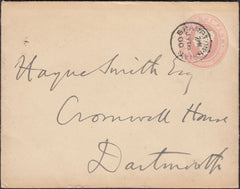 Hayne Smith Esq
Cromwell House
Dartmouth